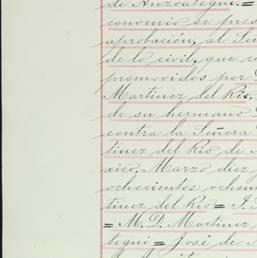 de Anzoategui.=
convenio se pres
aprobación, al Señ
de lo civil, que c
promovidos por
Martinez del Rio,
de su hermano
contra la Señora
tinez del Rio de
xico, Marzo diez
ochocientos ochen
tinez del Rio = J.
= M. D. Martinez
tegui = José de